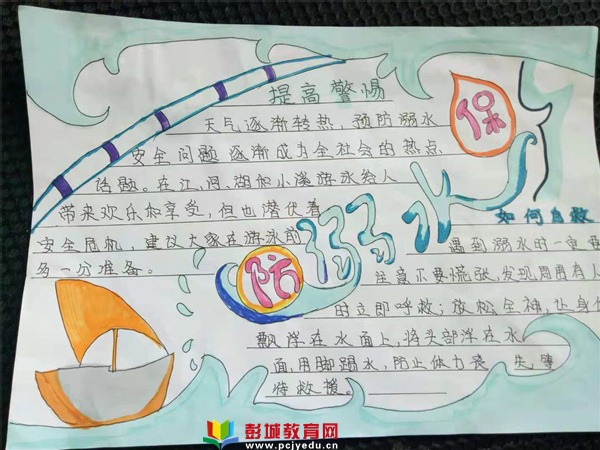 提高警惕
天气逐渐转热，预防溺水
安全问题逐渐成为全社会的热点
话题。在江、河、湖和小溪游泳给人
带来欢乐和享受，但也潜伏着
安全危机，建议大家在游泳前
多一分准备。
防溺水
保
如何自救
遇到溺水时一定要
注意不要慌张，发现周围有人
时立即呼救；放松全神，让身体
飘浮在水面上，将头部浮在水
面，用脚踢水，防止体力丧失，等
待救援。
彭城教育网
www.pcjyedu.cn